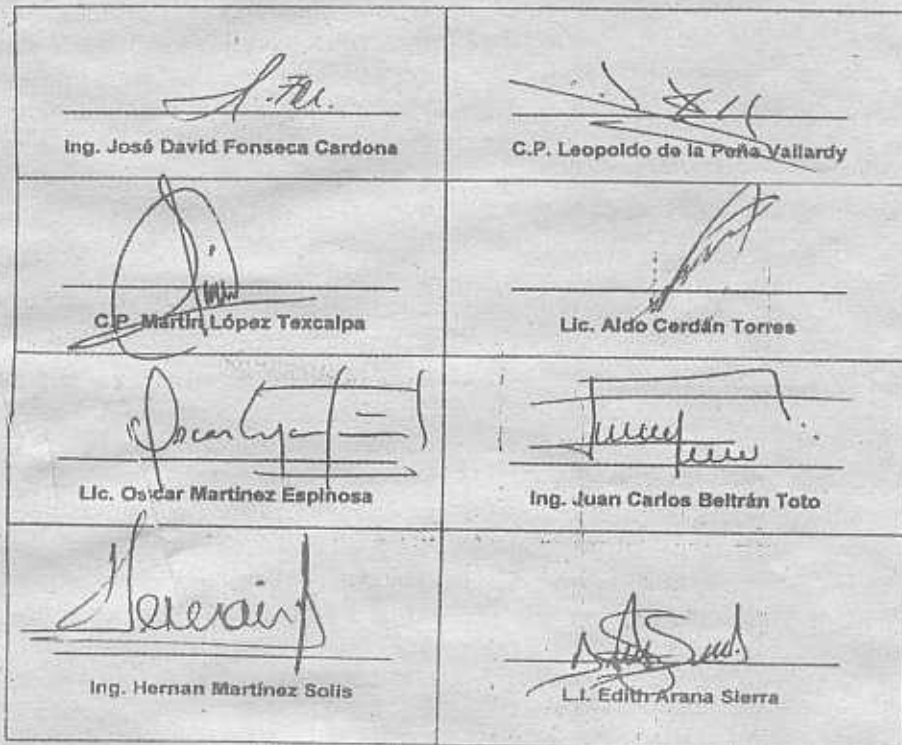 Ing. José David Fonseca Cardona
C.P. Leopoldo de la Peña Vallardy
C.P. Martín López Texcalpa
Lic. Aldo Cerdán Torres
Lic. Oscar Martínez Espinosa
Ing. Juan Carlos Beltrán Toto
Ing. Hernan Martínez Solis
L.I. Edith Arana Sierra